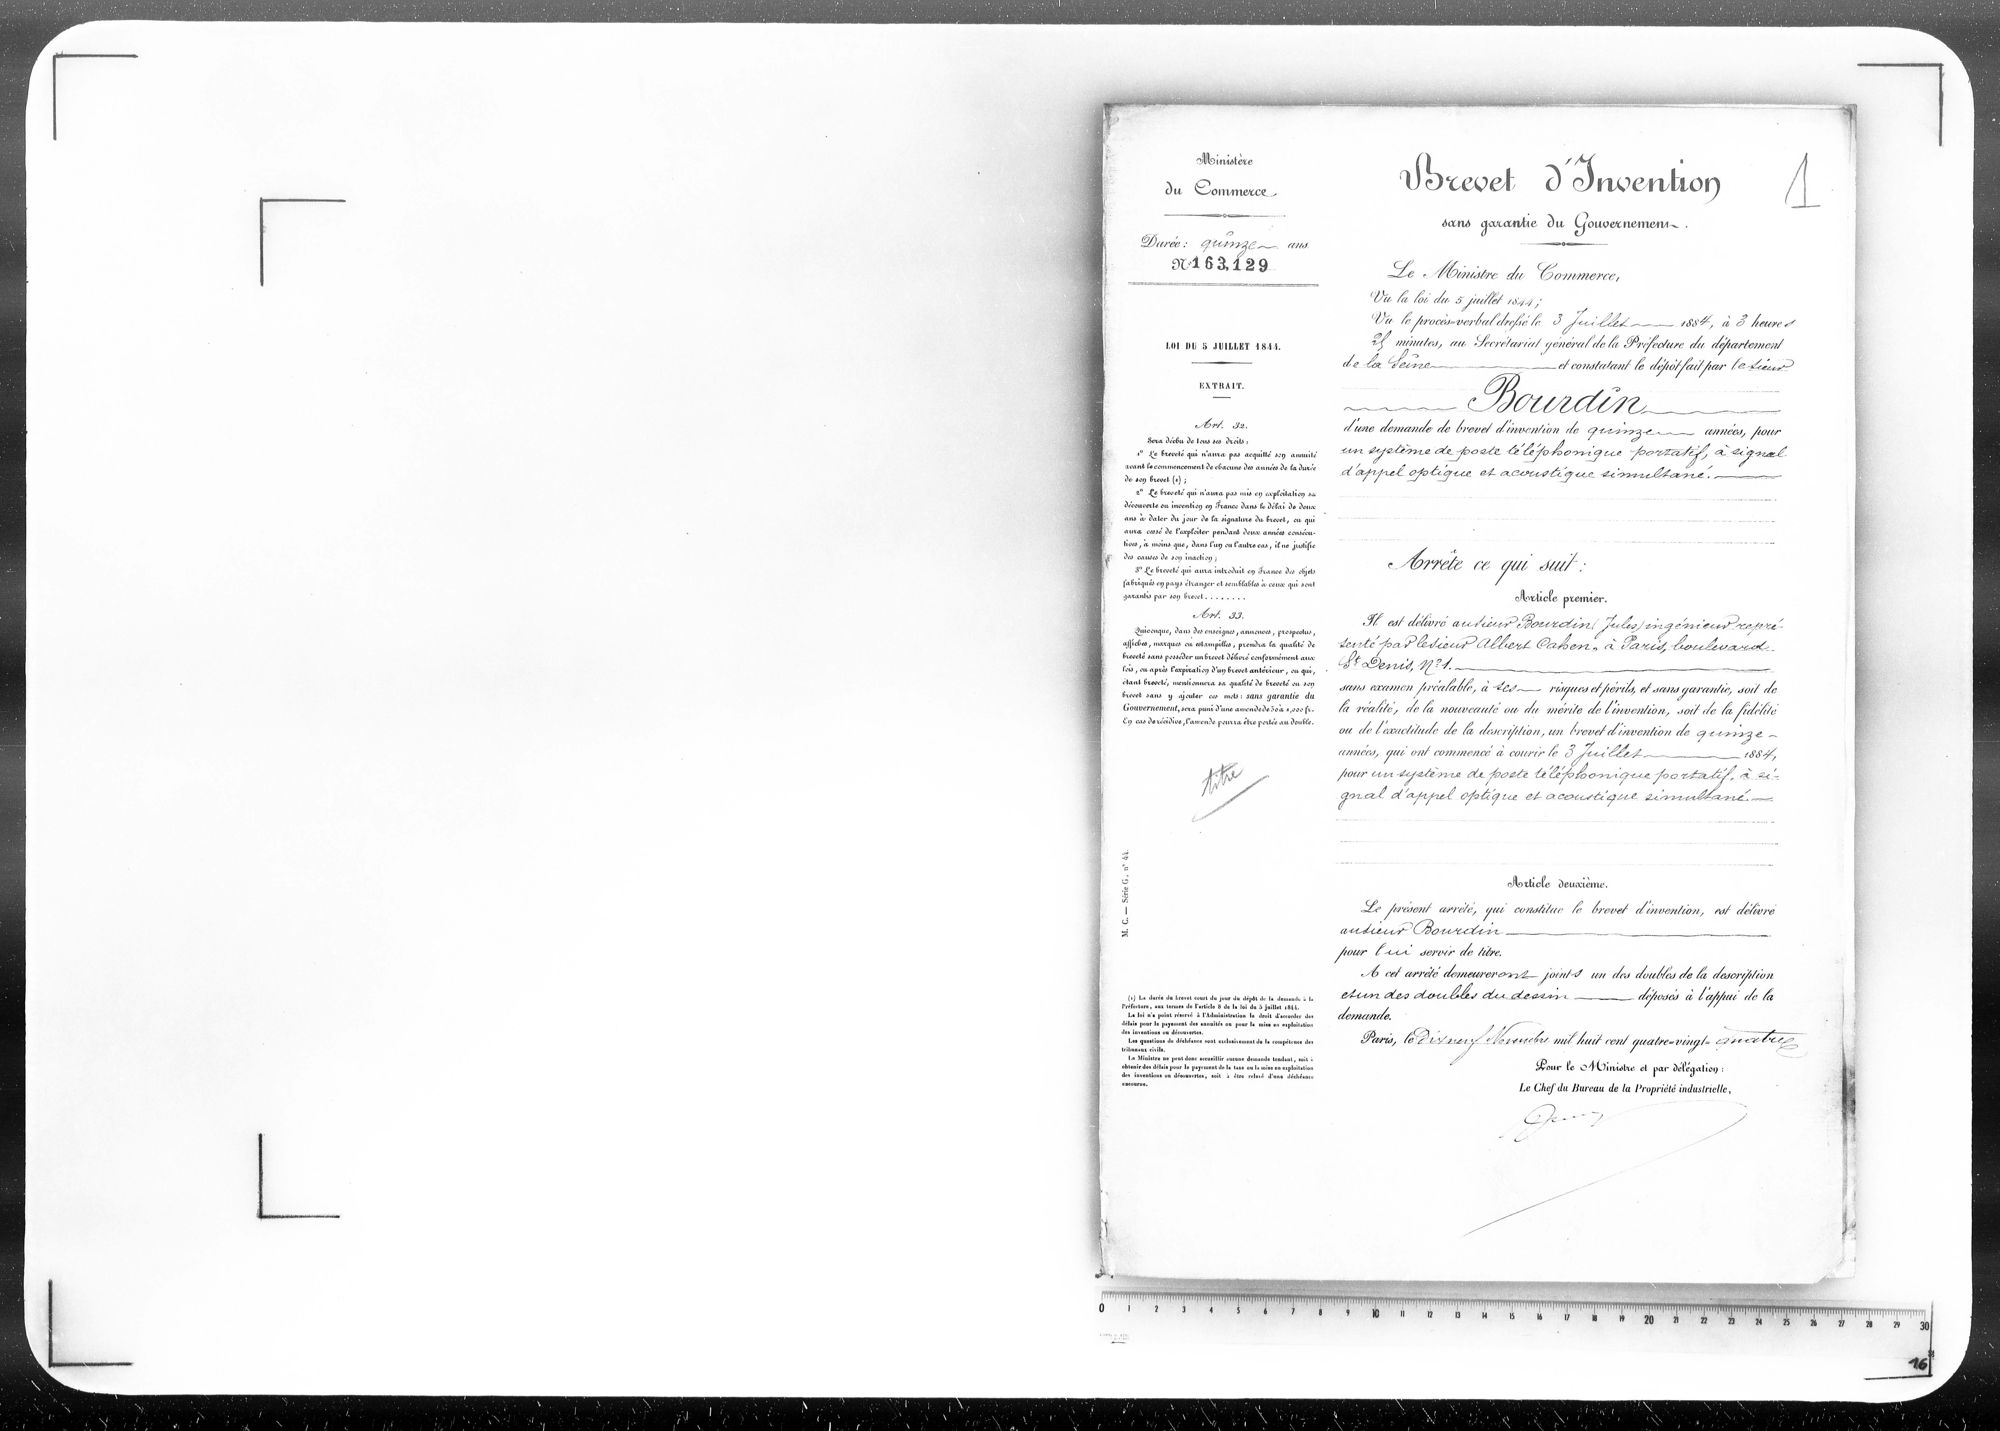 Ministère
du Commerce
Durée : quinze ans
N° 163,129
LOI DU 5 JUILLET 1844.
EXTRAIT.
Art. 32.
Sera déchu de tous ses droits :
1° Le breveté qui n'aura pas acquitté son annuité
avant le commencement de chacune des années de la durée
de son brevet (1) ;
2° Le breveté qui n'aura pas mis en exploitation sa
découverte ou invention en France dans le délai de deux
ans à dater du jour de la signature du brevet, ou qui
aura cessé de l'exploiter pendant deux années consécu-
tives, à moins que, dans l'un ou l'autre cas, il ne justifie
des causes de son inaction ;
3° Le breveté qui aura introduit en France des objets
fabriqués en pays étranger et semblables à ceux qui sont
garantis par son brevet........
Art. 33.
Quiconque, dans des enseignes, annonces, prospectus,
affiches, marques ou estampilles, prendra la qualité de
breveté sans posséder un brevet délivré conformément aux
lois, ou après l'expiration d'un brevet antérieur, ou qui,
étant breveté, mentionnera sa qualité de breveté ou son
brevet sans y ajouter ces mots : sans garantie du
Gouvernement, sera puni d'une amende de 50 à 1,000 fr.
En cas de récidive, l'amende pourra être portée au double.
titre
M. C. — Série G, n° 44.
(1) La durée du brevet court du jour du dépôt de la demande à la
Préfecture, aux termes de l'article 8 de la loi du 5 juillet 1844.
La loi n'a point réservé à l'Administration le droit d'accorder des
délais pour le payement des annuités ou pour la mise en exploitation
des inventions ou découvertes.
Les questions de déchéance sont exclusivement de la compétence des
tribunaux civils.
Le Ministre ne peut donc accueillir aucune demande tendant, soit à
obtenir des délais pour le payement de la taxe ou la mise en exploitation
des inventions ou découvertes, soit à être relevé d'une déchéance
encourue.
Brevet d'Invention
1
sans garantie du Gouvernement.
Le Ministre du Commerce,
Vu la loi du 5 juillet 1844 ;
Vu le procès-verbal dressé le 3 Juillet 1884, à 3 heures
25 minutes, au Secrétariat général de la Préfecture du département
de la Seine et constatant le dépôt fait par le sieur
Bourdin
d'une demande de brevet d'invention de quinze années, pour
un système de poste téléphonique portatif, à signal
d'appel optique et acoustique simultané.
Arrête ce qui suit :
Article premier.
Il est délivré au sieur Bourdin (Jules) ingénieur repré-
senté par le sieur Albert Cahen, à Paris, boulevard
St Denis, N° 1.
sans examen préalable, à ses risques et périls, et sans garantie, soit de
la réalité, de la nouveauté ou du mérite de l'invention, soit de la fidélité
ou de l'exactitude de la description, un brevet d'invention de quinze
années, qui ont commencé à courir le 3 Juillet 1884,
pour un système de poste téléphonique portatif, à si-
gnal d'appel optique et acoustique simultané
Article deuxième.
Le présent arrêté, qui constitue le brevet d'invention, est délivré
au sieur Bourdin
pour lui servir de titre.
A cet arrêté demeureront joints un des doubles de la description
et un des doubles du dessin déposés à l'appui de la
demande.
Paris, le dix neuf Novembre mil huit cent quatre-vingt-quatre
Pour le Ministre et par délégation :
Le Chef du Bureau de la Propriété industrielle,
0 1 2 3 4 5 6 7 8 9 10 11 12 13 14 15 16 17 18 19 20 21 22 23 24 25 26 27 28 29 30
16